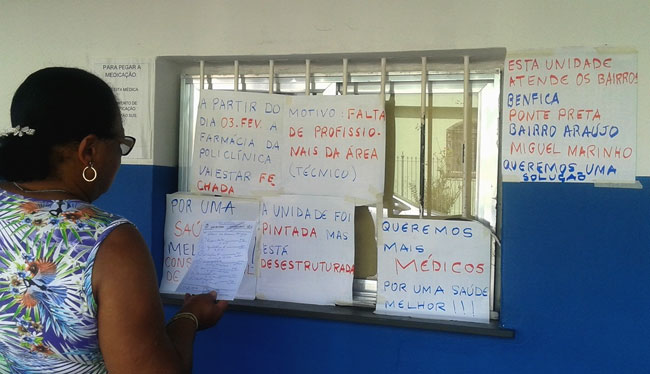 PARA PEGAR A
MEDICAÇÃO,
A PARTIR DO
DIA 03.FEV. A
FARMÁCIA DA
POLICLÍNICA
VAI ESTAR FE
CHADA
MOTIVO: FALTA
DE PROFISSIO-
NAIS DA ÁREA
(TÉCNICO)
ESTA UNIDADE
ATENDE OS BAIRROS
BENFICA
PONTE PRETA
BAIRRO ARAÚJO
MIGUEL MARINHO
QUEREMOS UMA
SOLUÇÃO
POR UMA
SAÚ
MELH
CONS
DE
A UNIDADE FOI
PINTADA MAS
ESTÁ
DESESTRUTURADA
QUEREMOS
MAIS
MÉDICOS
POR UMA SAÚDE
MELHOR!!!